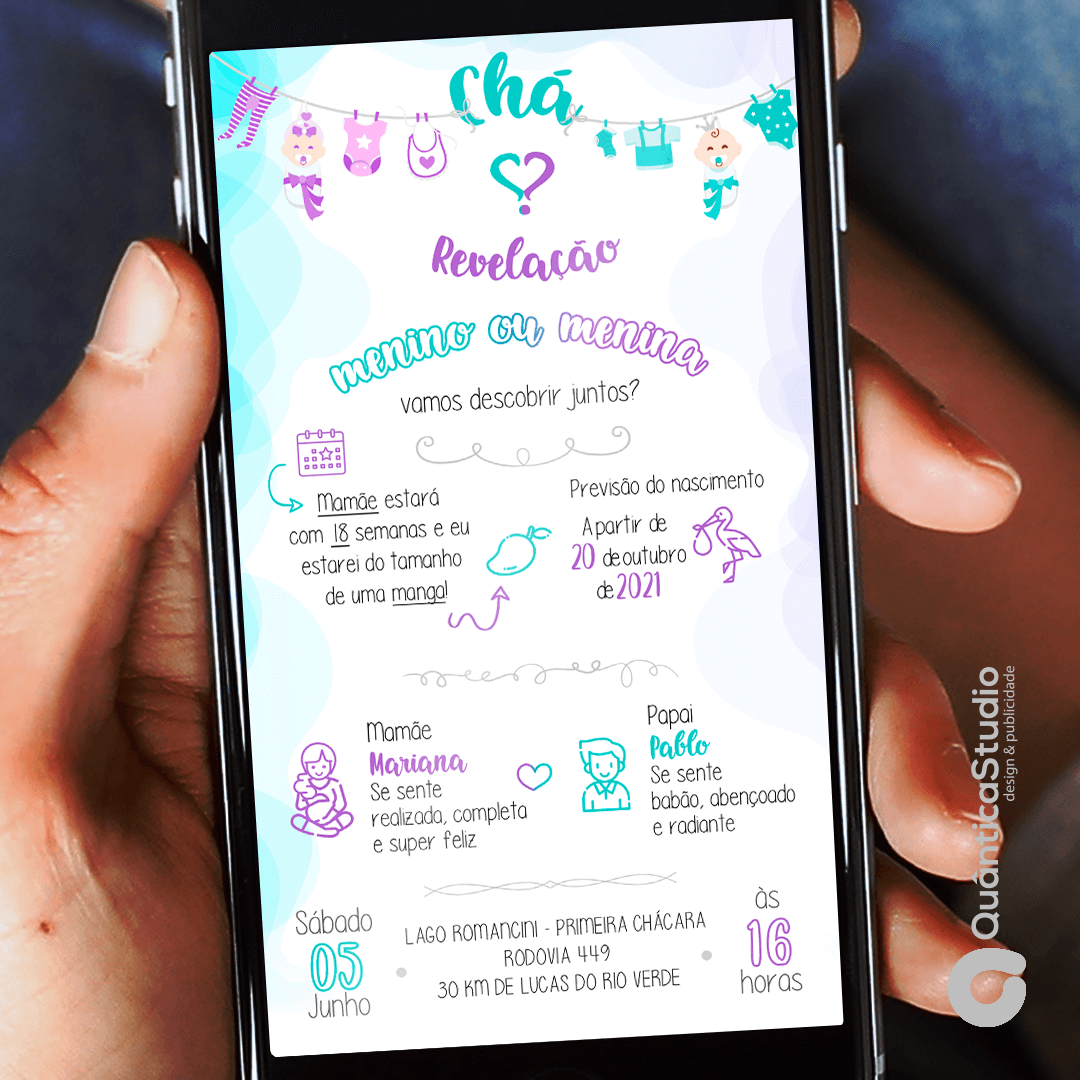 Chá
Revelação
menino ou menina
vamos descobrir juntos?
Mamãe estará
com 18 semanas e eu
estarei do tamanho
de uma manga!
Previsão do nascimento
A partir de
20 de outubro
de 2021
Mamãe
Mariana
Se sente
realizada, completa
e super feliz
Papai
Pablo
Se sente
babão, abençoado
e radiante
Sábado
05
Junho
LAGO ROMANCINI - PRIMEIRA CHÁCARA
RODOVIA 449
30 KM DE LUCAS DO RIO VERDE
às
16
horas
QuânticaStudio
design & publicidade